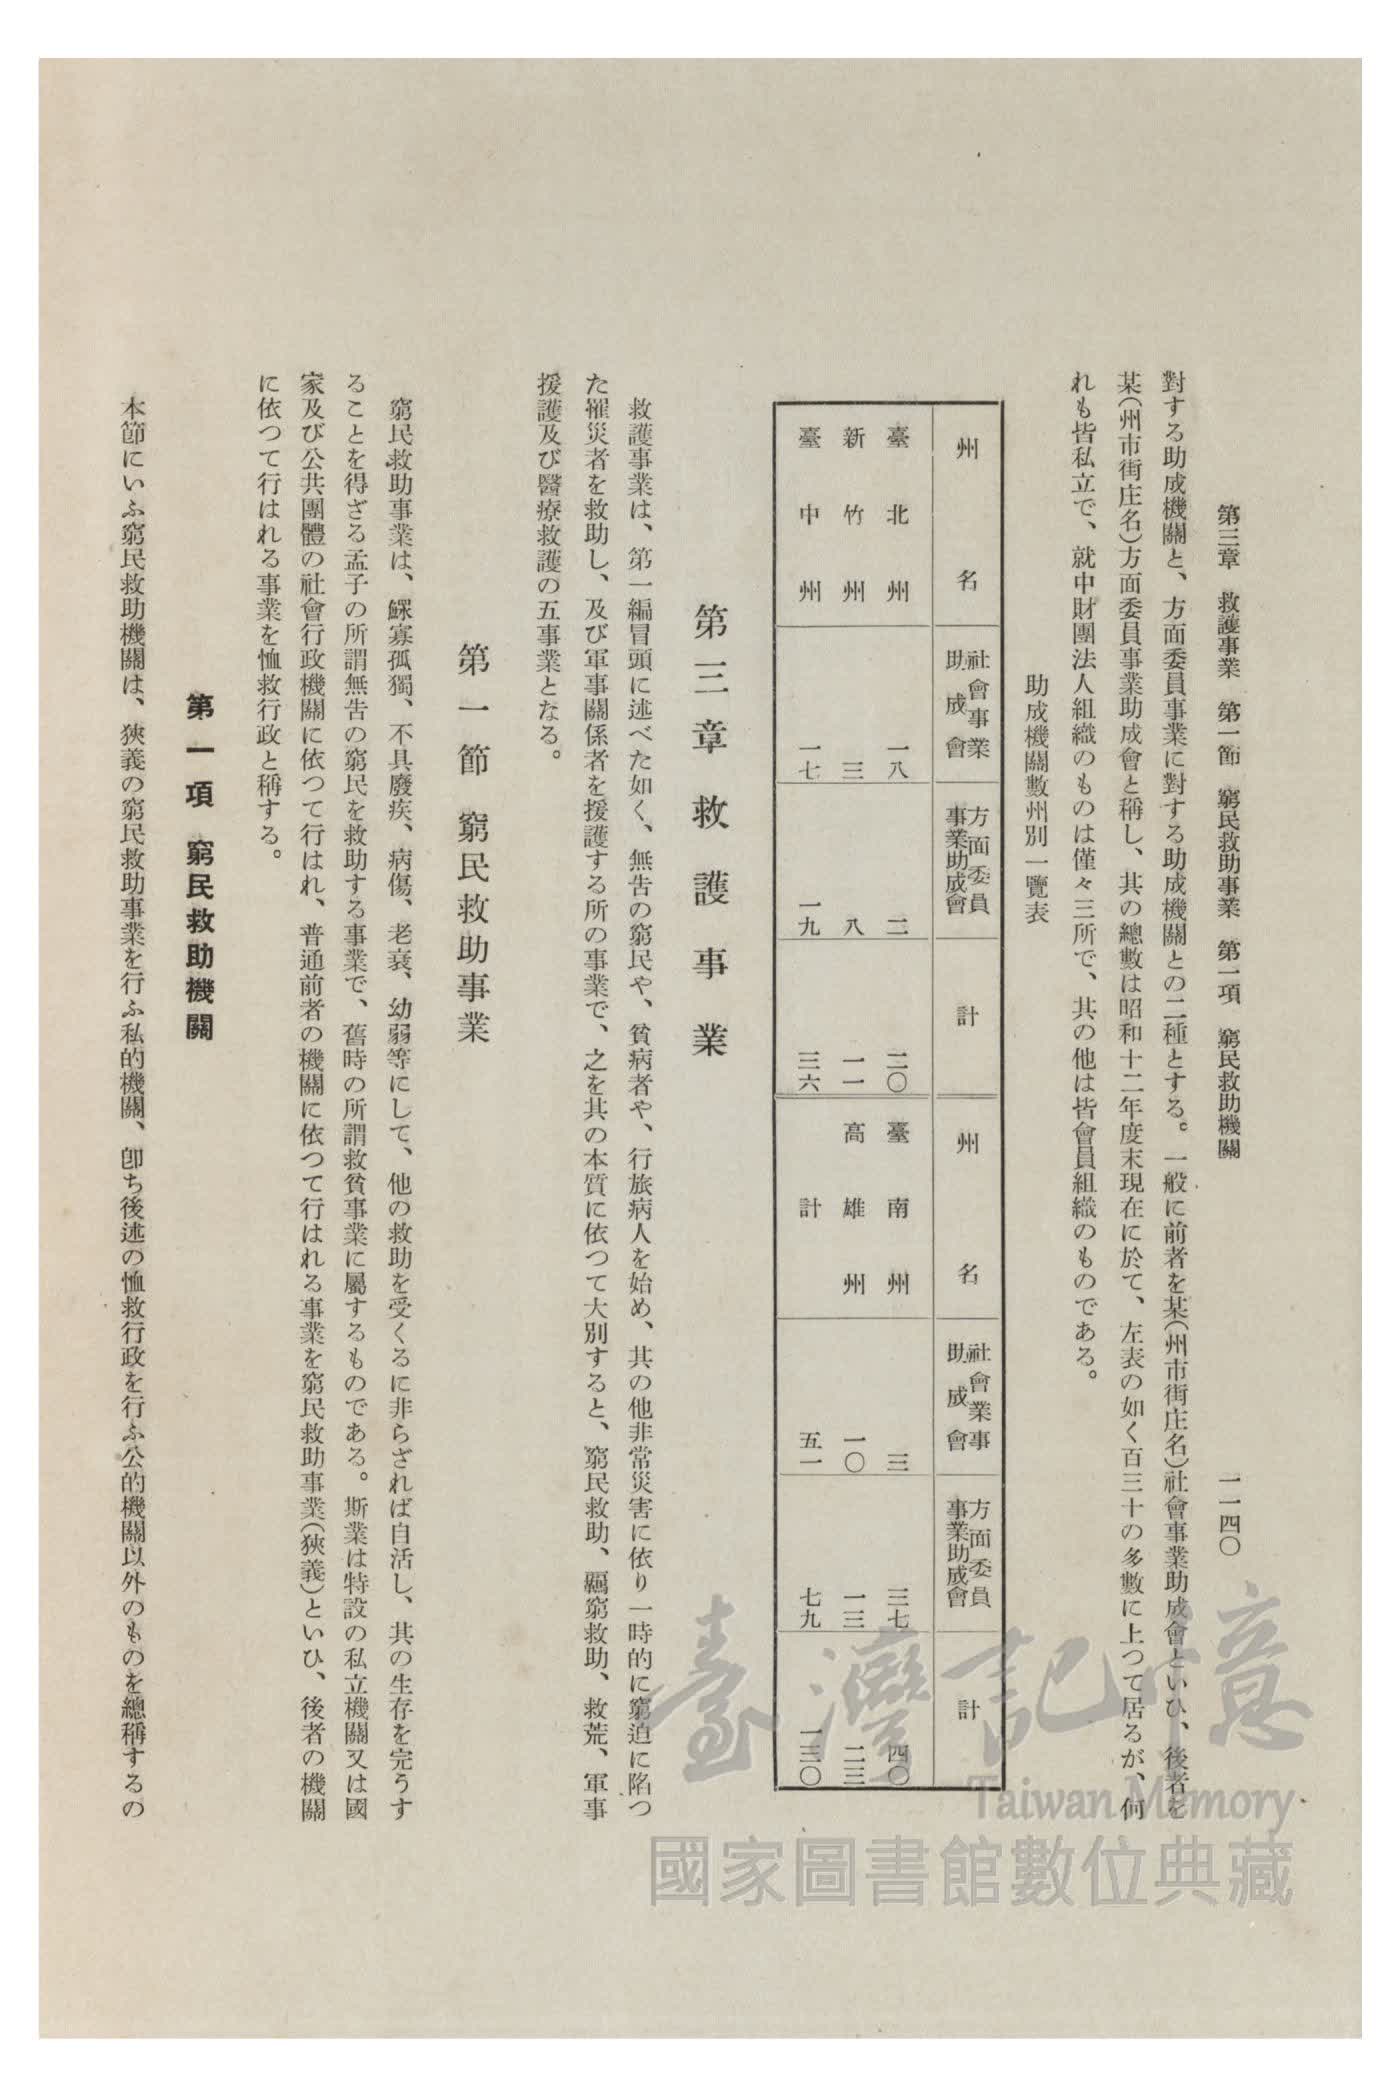 第三章　救護事業　第一節　窮民救助事業　第一項　窮民救助機關　一一四〇
對する助成機關と、方面委員事業に對する助成機關との二種とする。一般に前者を某（州市街庄名）社會事業助成會といひ、後者を
某（州市街庄名）方面委員事業助成會と稱し、其の總數は昭和十二年度末現在に於て、左表の如く百三十の多數に上つて居るが、何
れも皆私立で、就中財團法人組織のものは僅々三所で、其の他は皆會員組織のものである。
助成機關數州別一覽表
州名　社會事業助成會　方面委員事業助成會　計　州名　社會業事助成會　方面委員事業助成會　計
臺北州　一八　二　二〇　臺南州　三　三七　四〇
新竹州　三　八　一一　高雄州　一〇　一三　二三
臺中州　一七　一九　三六　計　五一　七九　一三〇
第三章　救護事業
救護事業は、第一編冒頭に述べた如く、無告の窮民や、貧病者や、行旅病人を始め、其の他非常災害に依り一時的に窮迫に陷つ
た罹災者を救助し、及び軍事關係者を援護する所の事業で、之を其の本質に依つて大別すると、窮民救助、羈窮救助、救荒、軍事
援護及び醫療救護の五事業となる。
第一節　窮民救助事業
窮民救助事業は、鰥寡孤獨、不具廢疾、病傷、老衰、幼弱等にして、他の救助を受くるに非らざれば自活し、其の生存を完うす
ることを得ざる孟子の所謂無告の窮民を救助する事業で、舊時の所謂救貧事業に屬するものである。斯業は特設の私立機關又は國
家及び公共團體の社會行政機關に依つて行はれ、普通前者の機關に依つて行はれる事業を窮民救助事業（狹義）といひ、後者の機關
に依つて行はれる事業を恤救行政と稱する。
第一項　窮民救助機關
本節にいふ窮民救助機關は、狹義の窮民救助事業を行ふ私的機關、卽ち後述の恤救行政を行ふ公的機關以外のものを總稱するの
臺灣記憶
Taiwan Memory
國家圖書館數位典藏